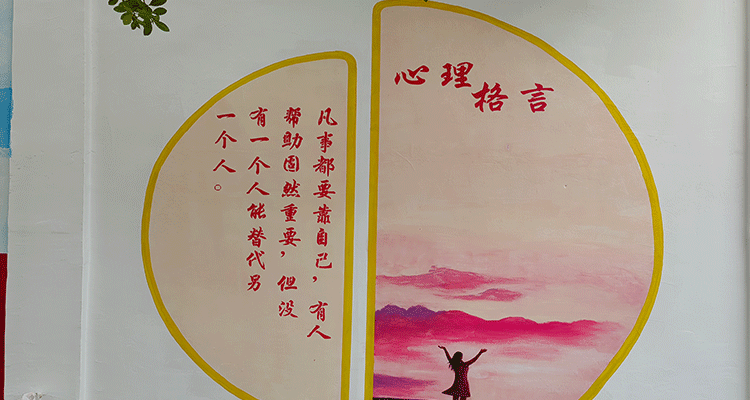 心理格言
凡事都要靠自己，有人
帮助固然重要，但没
有一个人能替代另
一个人。